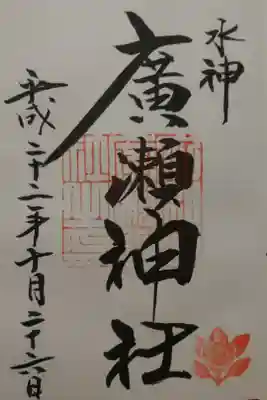 水神
廣瀬神社
平成二十二年十月二十六日